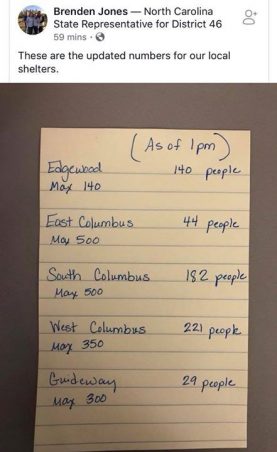 Brenden Jones — North Carolina
State Representative for District 46
59 mins ·
These are the updated numbers for our local
shelters.
(As of 1pm)
Edgewood 140 people
Max 140
East Columbus 44 people
Max 500
South Columbus 182 people
Max 500
West Columbus 221 people
Max 350
Guideway 29 people
Max 300